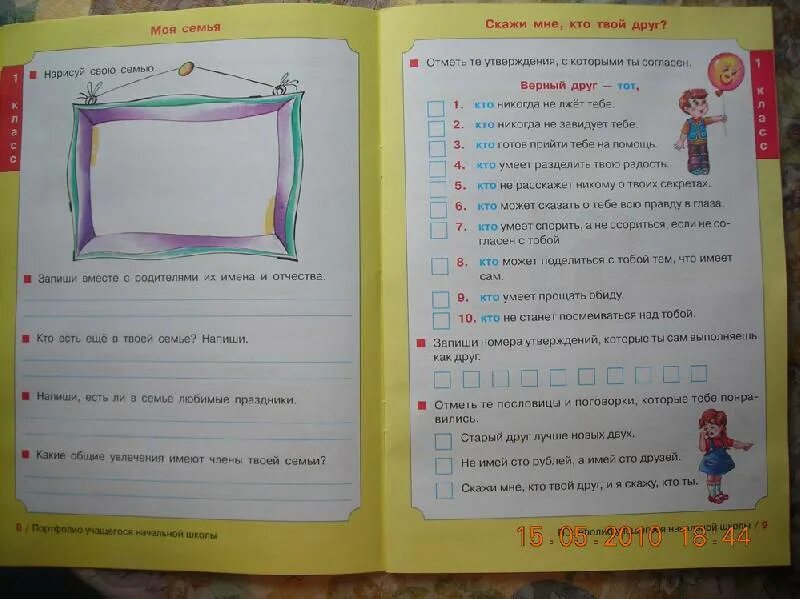 Моя семья
1 класс
Нарисуй свою семью.
Запиши вместе с родителями их имена и отчества.
Кто есть ещё в твоей семье? Напиши.
Напиши, есть ли в семье любимые праздники.
Какие общие увлечения имеют члены твоей семьи?
8 / Портфолио учащегося начальной школы
Скажи мне, кто твой друг?
1 класс
Отметь те утверждения, с которыми ты согласен.
Верный друг — тот,
1. кто никогда не лжёт тебе.
2. кто никогда не завидует тебе.
3. кто готов прийти тебе на помощь.
4. кто умеет разделить твою радость.
5. кто не расскажет никому о твоих секретах.
6. кто может сказать о тебе всю правду в глаза.
7. кто умеет спорить, а не ссориться, если не со-
гласен с тобой
8. кто может поделиться с тобой тем, что имеет
сам.
9. кто умеет прощать обиду.
10. кто не станет посмеиваться над тобой.
Запиши номера утверждений, которые ты сам выполняешь
как друг.
Отметь те пословицы и поговорки, которые тебе понра-
вились.
Старый друг лучше новых двух.
Не имей сто рублей, а имей сто друзей.
Скажи мне, кто твой друг, и я скажу, кто ты.
Портфолио учащегося начальной школы / 9
15.05.2010 18:44